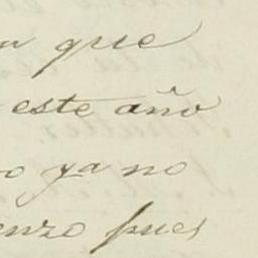 que
este año
ya no
pues